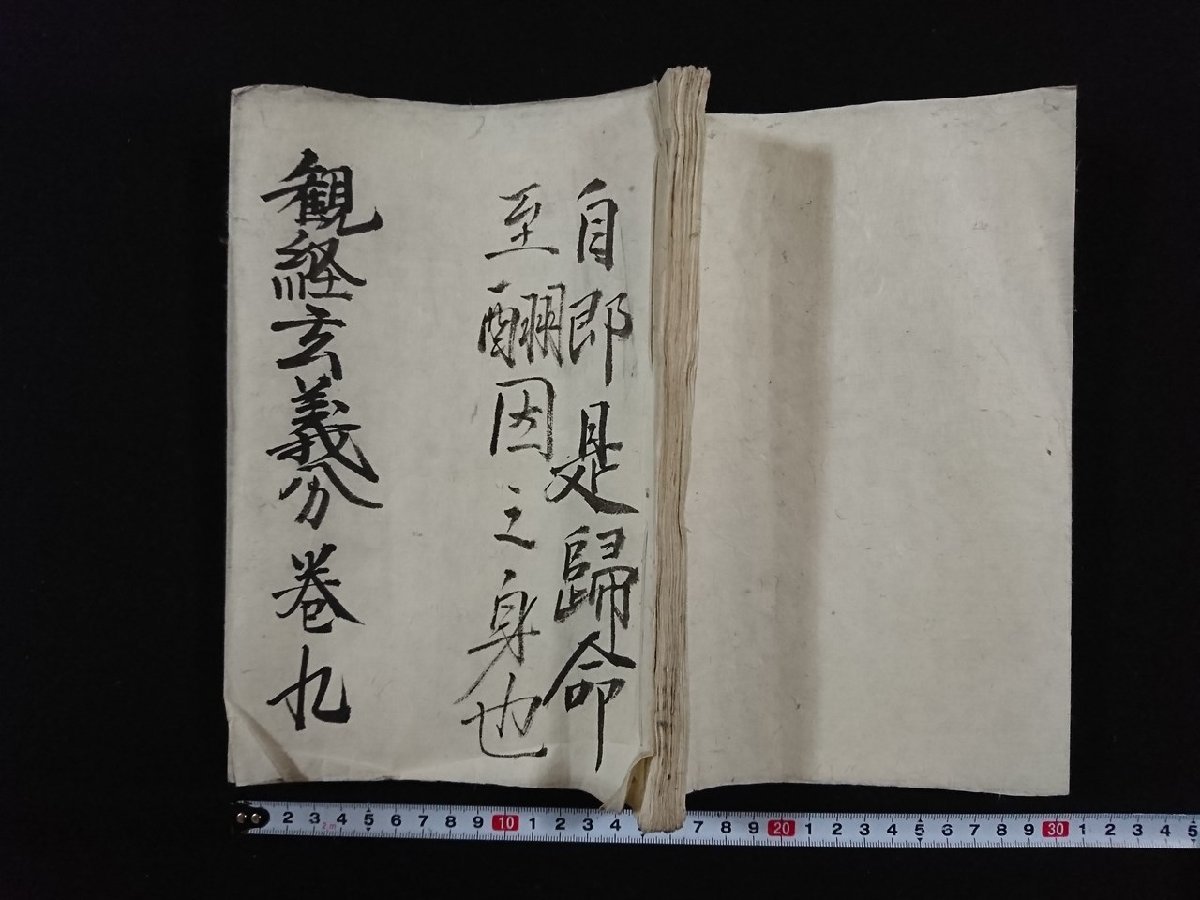 自即是歸命
至酬因之身也
観経玄義分 巻九
2 3 4 5 6 7 8 9 10 1 2 3 4 7 8 9 20 1 2 3 4 5 6 7 8 9 30 1 2 3 4 5